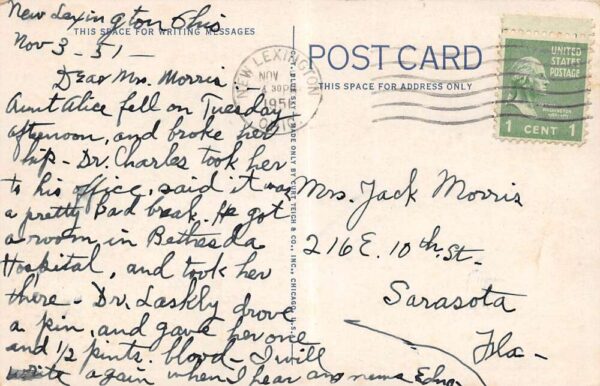 New Lexington Ohio
THIS SPACE FOR WRITING MESSAGES
Nov 3 - 51 -
Dear Mrs. Morris
Aunt Alice fell on Tuesday
afternoon, and broke her
hip - Dr. Charles took her
to his office, said it was
a pretty bad break. He got
a room in Bethesda
Hospital, and took her
there - Dr. Laskly drove
a pin, and gave her one
and 1/2 pints blood - I will
write again when I hear any news Edna
MADE ONLY BY CURT TEICH & CO., INC., CHICAGO, U.S.
NEW LEXINGTON
NOV
30 PM
195
OHIO
POST CARD
THIS SPACE FOR ADDRESS ONLY
UNITED
STATES
POSTAGE
WASHINGTON
1 CENT 1
Mrs. Jack Morris
216 E. 10th. St -
Sarasota
Fla -